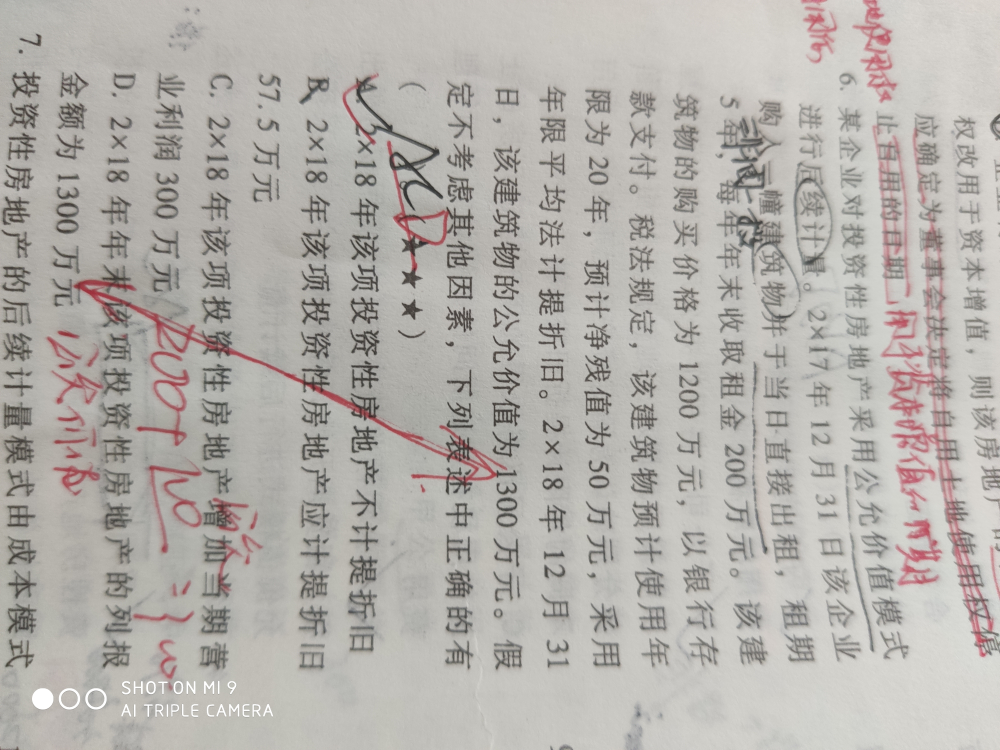 权改用于资本增值，则该房地产
应确定为董事会决定将自用土地使用权停
止自用的日期
用于资本增值的日期
6. 某企业对投资性房地产采用公允价值模式
进行后续计量。2×17 年 12 月 31 日该企业
购入一幢建筑物并于当日直接出租，租期
5 年，每年年末收取租金 200 万元。该建
筑物的购买价格为 1200 万元，以银行存
款支付。税法规定，该建筑物预计使用年
限为 20 年，预计净残值为 50 万元，采用
年限平均法计提折旧。2×18 年 12 月 31
日，该建筑物的公允价值为 1300 万元。假
定不考虑其他因素，下列表述中正确的有
（ ACD ★★★）
A. 2×18 年该项投资性房地产不计提折旧
B. 2×18 年该项投资性房地产应计提折旧
57.5 万元
C. 2×18 年该项投资性房地产增加当期营
业利润 300 万元
200+100=300
D. 2×18 年年末该项投资性房地产的列报
金额为 1300 万元
公允价值
7. 投资性房地产的后续计量模式由成本模式
SHOT ON MI 9
AI TRIPLE CAMERA